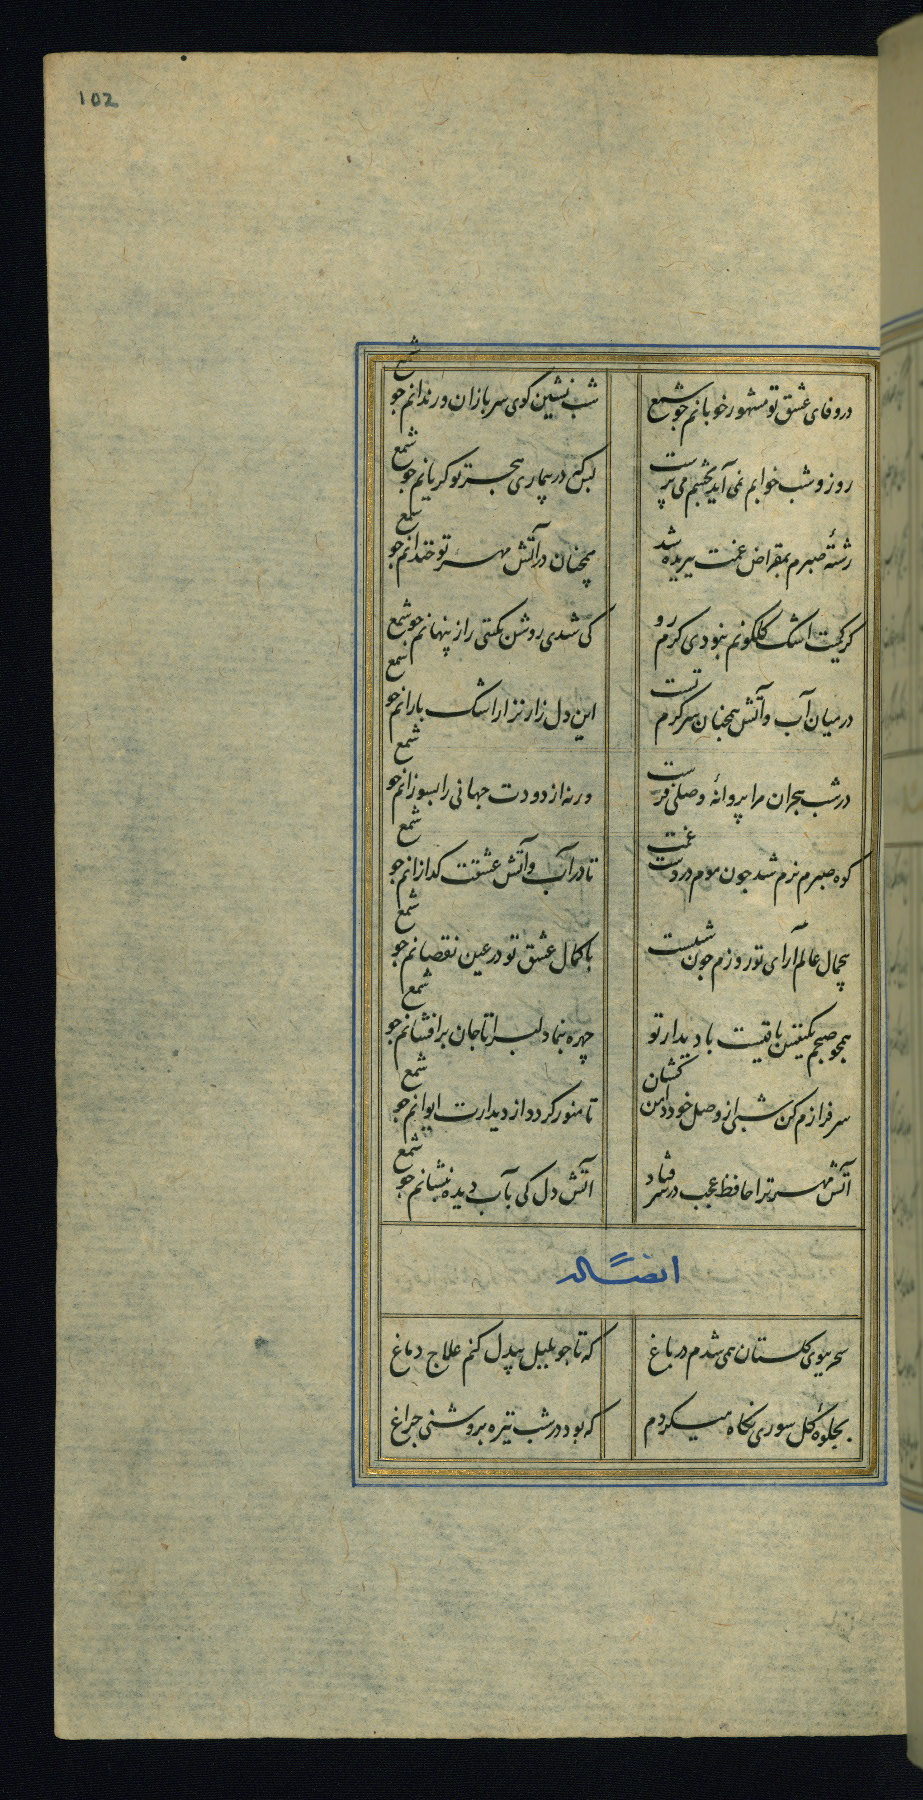 102
در وفای عشق تو مشهور خوبانم جو شمع
شب نشین کوی سربازان و رندانم جو شمع
روز و شب خوابم نمی آید بچشم می پرست
بس که در بیماری هجر تو کریانم جو شمع
رشتهٔ صبرم بمقراض غمت ببریده شد
همچنان در آتش مهر تو خندانم جو شمع
کر کمیت اشک کلکونم نبودی کرم رو
کی شدی روشن بکیتی راز پنهانم جو شمع
در میان آب و آتش همچنان سرکرم تست
این دل زار نزار اشک بارانم جو شمع
در شب هجران مرا پروانهٔ وصلی فرست
ورنه از دودت جهانی را بسوزانم جو شمع
کوه صبرم نرم شد جون موم در دست غمت
تا در آب و آتش عشقت کدازانم جو شمع
بیجمال عالم آرای تو روزم جون شبست
با کمال عشق تو در عین نقصانم جو شمع
همجو صبحم یکنفس باقیست با دیدار تو
چهره بنما دلبرا تا جان برافشانم جو شمع
سرفرازم کن شبی از وصل خود دامن کشان
تا منور کردد از دیدارت ایوانم جو شمع
آتش مهر ترا حافظ عجب در سر فتاد
آتش دل کی بآب دیده بنشانم جو شمع
ایضاً له
سحر ببوی کلستان همی شدم در باغ
که تا جو بلبل بیدل کنم علاج دماغ
بجلوهٔ کل سوری نکاه میکردم
که بود در شب تیره بروشنی جراغ